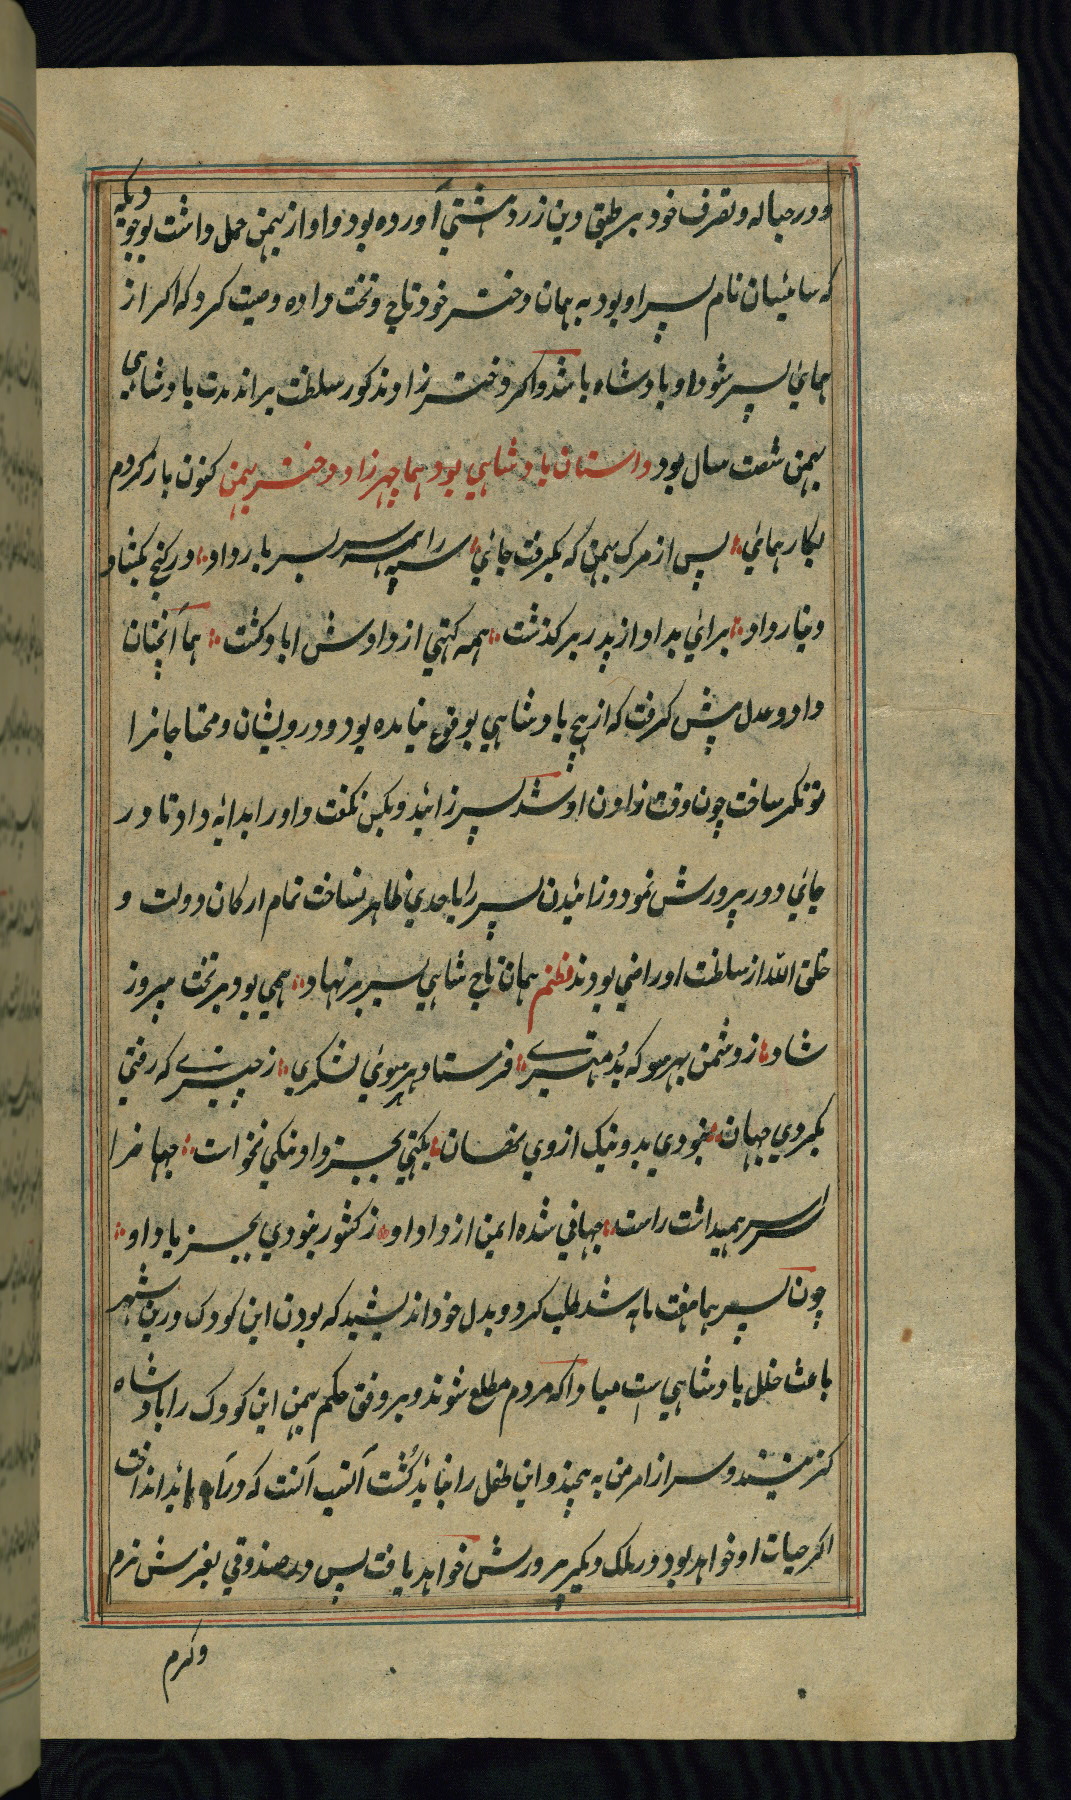 و در حباله و تصرف خود بر طبق دین زردهشتي آورده بود و او از بهمن حمل داشت بوجودیکه
که ساسٔیان نام پسر او بود به همان دختر خود تاج و تخت داده وصیت کرد که اکر از
همائي پسر شود او بادشاه باشد و اکر دختر زاد مذکور سلطنت براند مدت بادشاهي
بهمن شصت سال بود داستان بادشاهي بود هما چهرزاد دختر بهمن کنون باز کردم
بکار همائي پس از مرک بهمن که بکرفت جائي سپه را همه سربسر بار داد در کنج بکشاد و
دینار داد براي بداد از پدر بر کذشت همه کیتي از دادش اباد کشت هما آنچنان
داد و عدل پیش کرفت که از هیچ بادشاهي بوقوع نیامده بود و درویشان و محتاجانرا
تونکر ساخت چون وقت زادن او شد پسر زائید و بکس نکفت و او را بدایه داد تا در
جائي دور پرورش نمود و زائیدن پسر را باحدي ظاهر نساخت تمام ارکان دولت و
خلق الله از سلطنت او راضي بودند نظم همان تاج شاهي بسر بر نهاد همي بود بر تخت پیروز
شاد ز دشمن بهر سو که بُد مهتري فرستاد بهر سوئي لشکري ز چیزي که رفتي
بکردي جهان نبودي بد و نیک از وي نهان بکیتي بجز داد و نیکي نخواست جهانرا
سراسر همیداشت راست جهاني شده ایمن از داد او ز کشور نبودي بجز یاد او
چون پسر هما هفت ماهه شد طلب کرد و بدل خود اندیشید که بودن این کودک درین شهر
باعث خلل بادشاهي است مبادا که مردم مطلع شوند و بر وفق حکم بهمن این کودک را بادشاه
کزینند و سر از امر من به پیچند و این طفل را نباید کُشت انسب آنست که در آب باید انداخت
اکر حیات او خواهد بود در ملک دیکر پرورش خواهد یافت پس در صندوقي بفرش نرم
و کرم